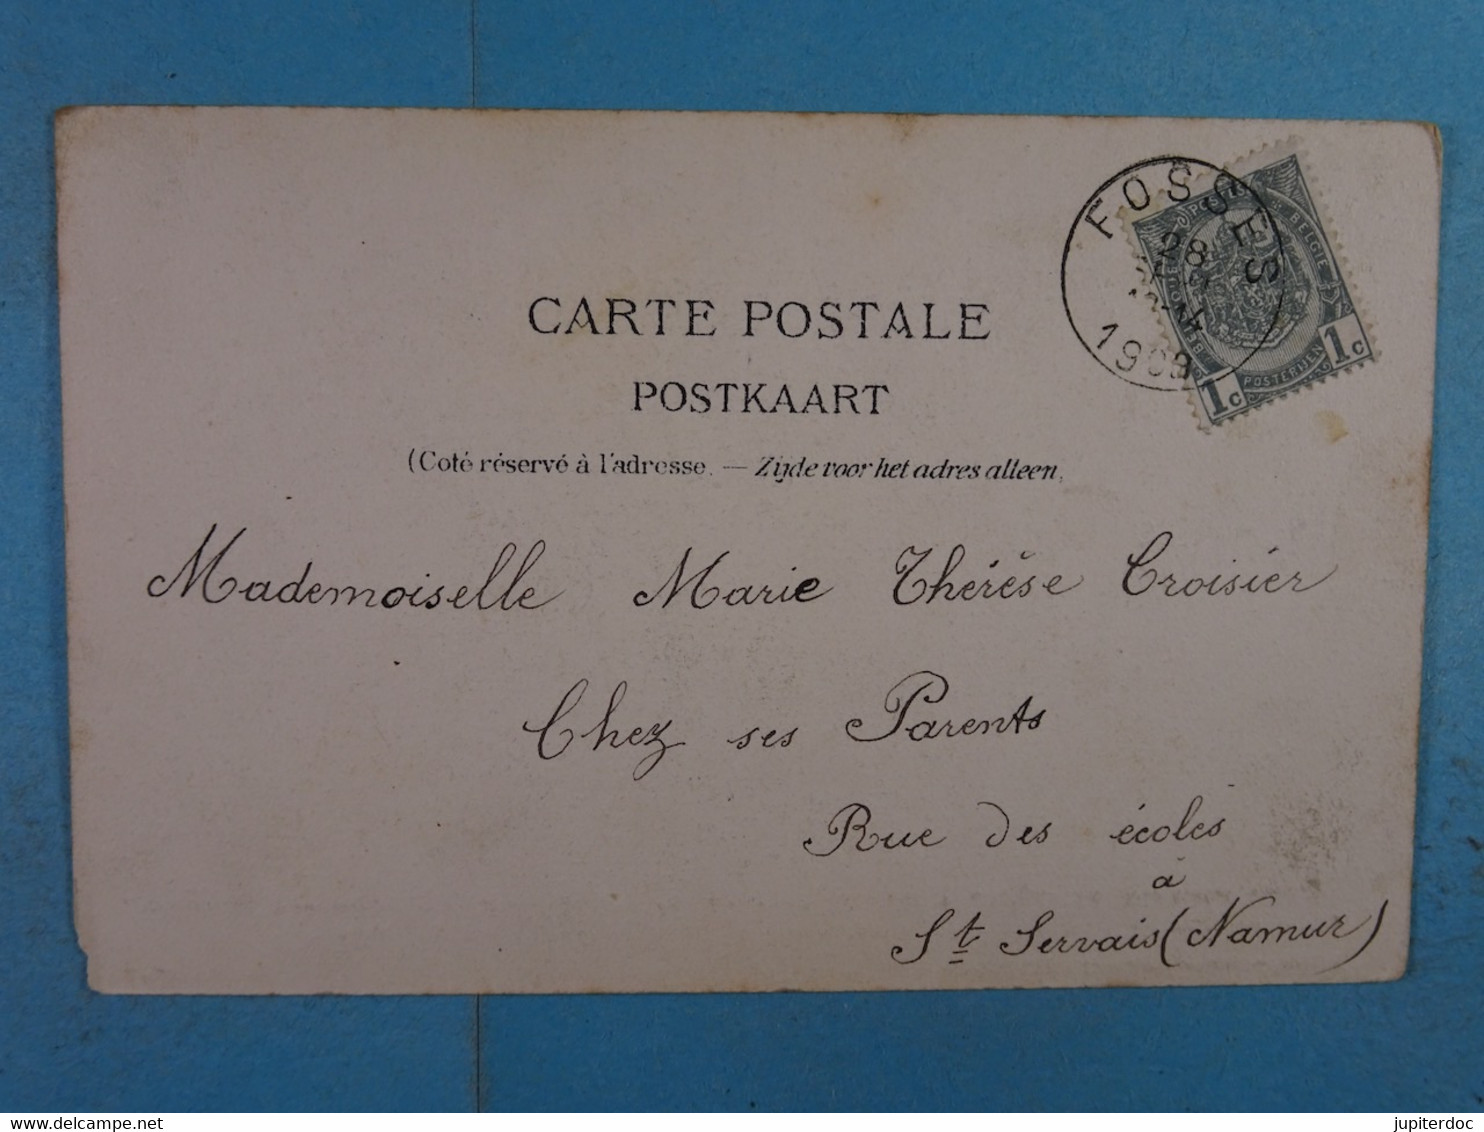 FOSSES
28
1909
POSTERIJEN
BELGIE
1c
1c
CARTE POSTALE
POSTKAART
(Coté réservé à l'adresse. — Zijde voor het adres alleen.
Mademoiselle Marie Thérèse Croisier
Chez ses Parents
Rue des écoles
à
St Servais (Namur)
www.delcampe.net
jupiterdoc